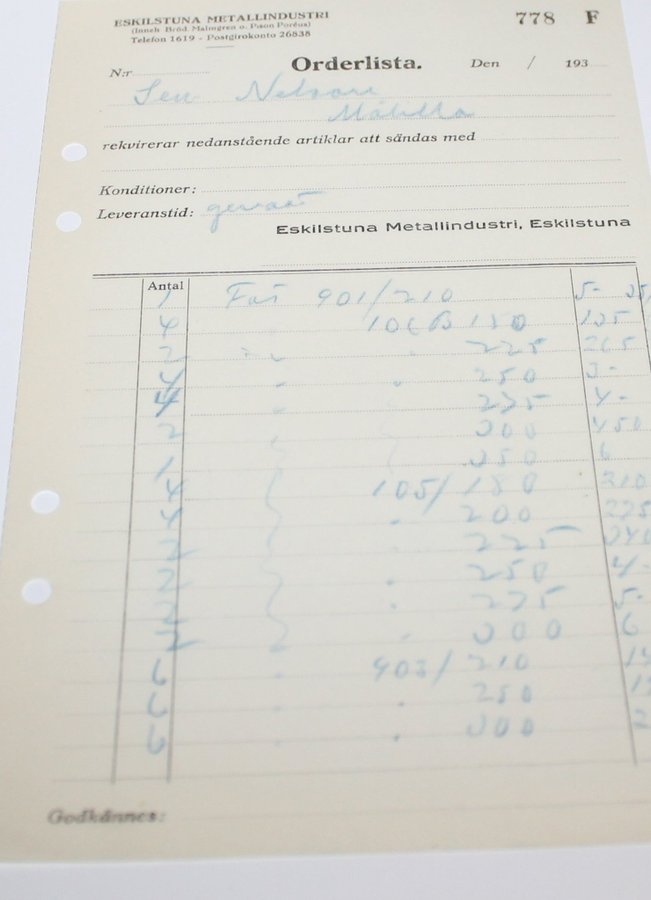 ESKILSTUNA METALLINDUSTRI 778 F
(Inneh. Bröd. Malmgren o. P:son Poréus)
Telefon 1619 - Postgirokonto 26838
N:r Orderlista. Den / 193
Sen Nelson
Målilla
rekvirerar nedanstående artiklar att sändas med
Konditioner:
Leveranstid: genast
Eskilstuna Metallindustri, Eskilstuna
Antal
1 Fat 901/210 5-
4 106B 150 195
2 225 265
4 250 3-
4 275 4-
2 300 450
1 350 6
4 105/180 210
4 200 225
2 225 340
2 250 4-
2 275 5-
2 300 6
6 403/210
6 250
6 300
Godkännes: